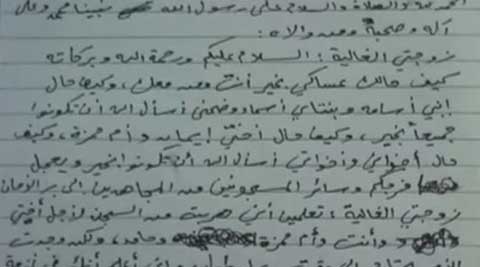 الحمد لله والصلاة والسلام على رسول الله نبينا محمد وعلى
آله وصحبه ومن والاه:
زوجتي الغالية: السلام عليكم ورحمة الله وبركاته
كيف حالك عساكي بخير أنت ومن معك، وكيف حال
إبني أسامه وبنتاي أسماء وضحى أسأل الله أن تكونوا
جميعاً بخير، وكيف حال أختي إيمان و أم حمزة، وكيف
حال أخواني وأخواتي أسأل الله أن تكونوا بخير ويعجل
فرجكم وسائر المسجونين من المجاهدين إلى بر الأمان
زوجتي الغالية: تعلمين أنني هربت من السجن لأجل أختي
وأنت وأم حمزة وحامد، ولكن وجدت